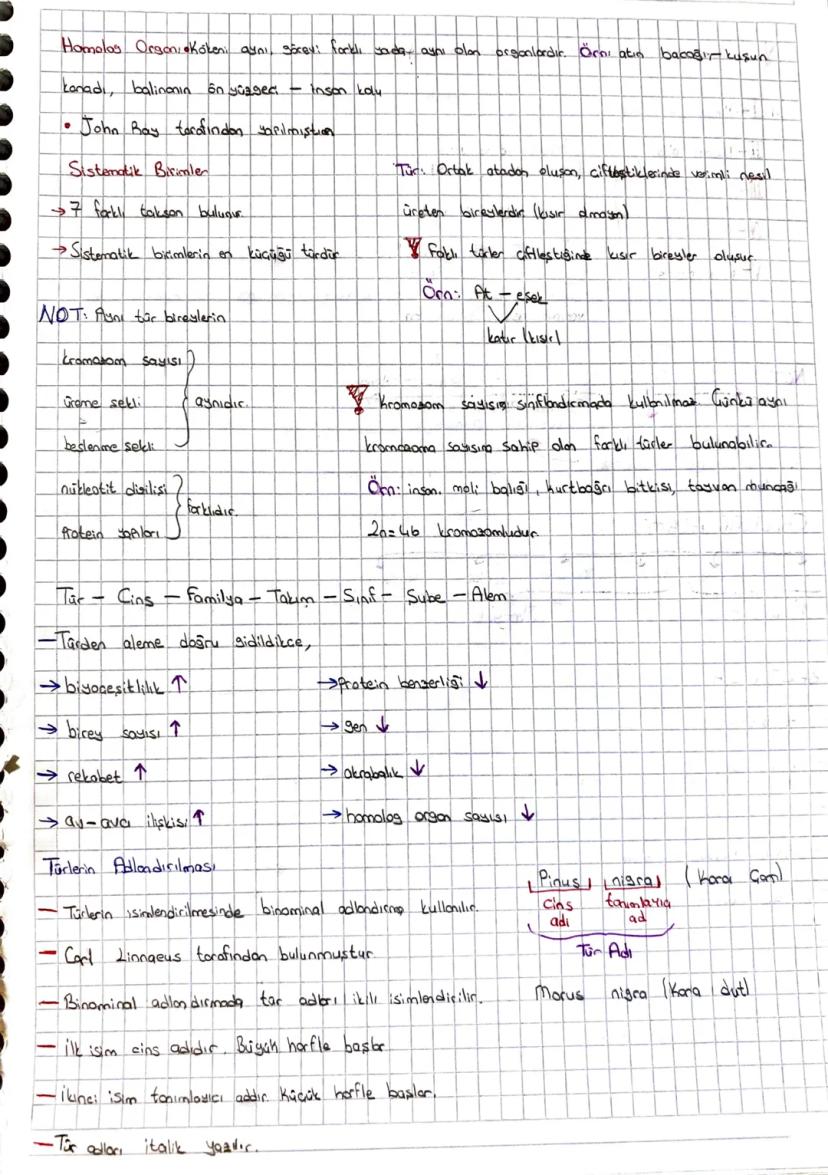 Homolog Organ: Kökeni aynı, görevi farklı yada aynı olan organlardır. Örn: atın bacağı - kuşun
kanadı, balinanın ön yüzgeci - insan kolu
• John Ray tarafından yapılmıştır.
Sistematik Birimler
→ 7 farklı takson bulunur.
→ Sistematik birimlerin en küçüğü türdür
Tür: Ortak atadan oluşan, çiftleştiklerinde verimli nesil
üreten bireylerdir (kısır olmayan)
Faklı türler çiftleştiğinde kısır bireyler oluşur.
Örn: At - eşek
katır (kısır)
NOT: Aynı tür bireylerin
kromozom sayısı
üreme şekli
beslenme şekli
aynıdır.
nükleotit dizilişi
Protein yapıları
farklıdır.
Kromozom sayısı sınıflandırmada kullanılmaz. Çünkü aynı
kromozoma sayısına sahip olan farklı türler bulunabilir.
Örn: insan, moli balığı, kurtbağrı bitkisi, tayvan muncağı
2n=46 kromozomludur.
Tür - Cins - Familya - Takım - Sınıf - Şube - Alem
- Türden aleme doğru gidildikçe,
→ biyoçeşitlilik ↑
→ birey sayısı ↑
→ rekabet ↑
→ av-avcı ilişkisi ↑
→ Protein benzerliği ↓
→ gen ↓
→ akrabalık ↓
→ homolog organ sayısı ↓
Türlerin Adlandırılması
- Türlerin isimlendirilmesinde binominal adlandırma kullanılır.
- Carl Linnaeus tarafından bulunmuştur.
- Binominal adlandırmada tür adları ikili isimlendirilir.
- ilk isim cins adıdır. Büyük harfle başlar
- ikinci isim tanımlayıcı addır. Küçük harfle başlar.
- Tür adları italik yazılır.
Pinus nigra (Kara Çam)
cins adı
tanımlayıcı ad
Tür Adı
Morus nigra (Kara dut)